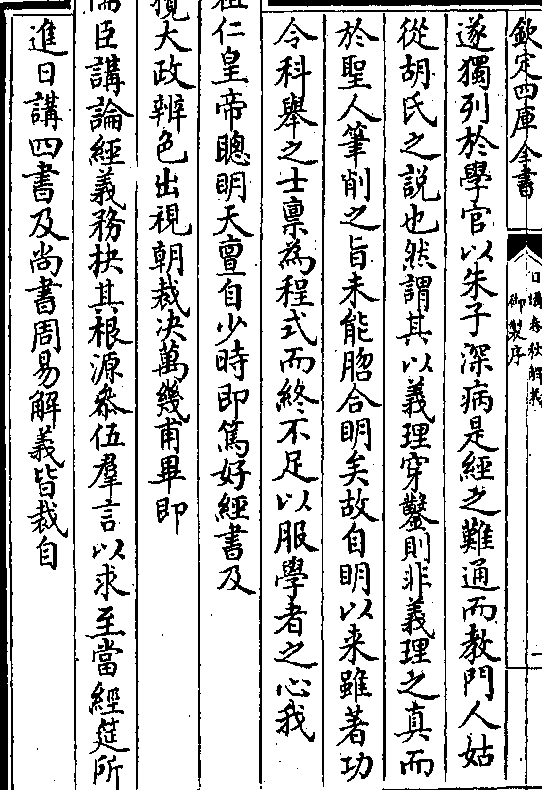 欽定四庫全書
日講春秋解義
御製序
一
遂獨列於學官以朱子深病是經之難通而教門人姑
從胡氏之說也然謂其以義理穿鑿則非義理之真而
於聖人筆削之旨未能脗合明矣故自明以来雖著功
令科舉之士稟為程式而終不足以服學者之心我
祖仁皇帝聰明天亶自少時即篤好經書及
攬大政辨色出視朝裁決萬幾甫畢即
儒臣講論經義務抉其根源叅伍羣言以求至當經筵所
進日講四書及尚書周易解義皆裁自